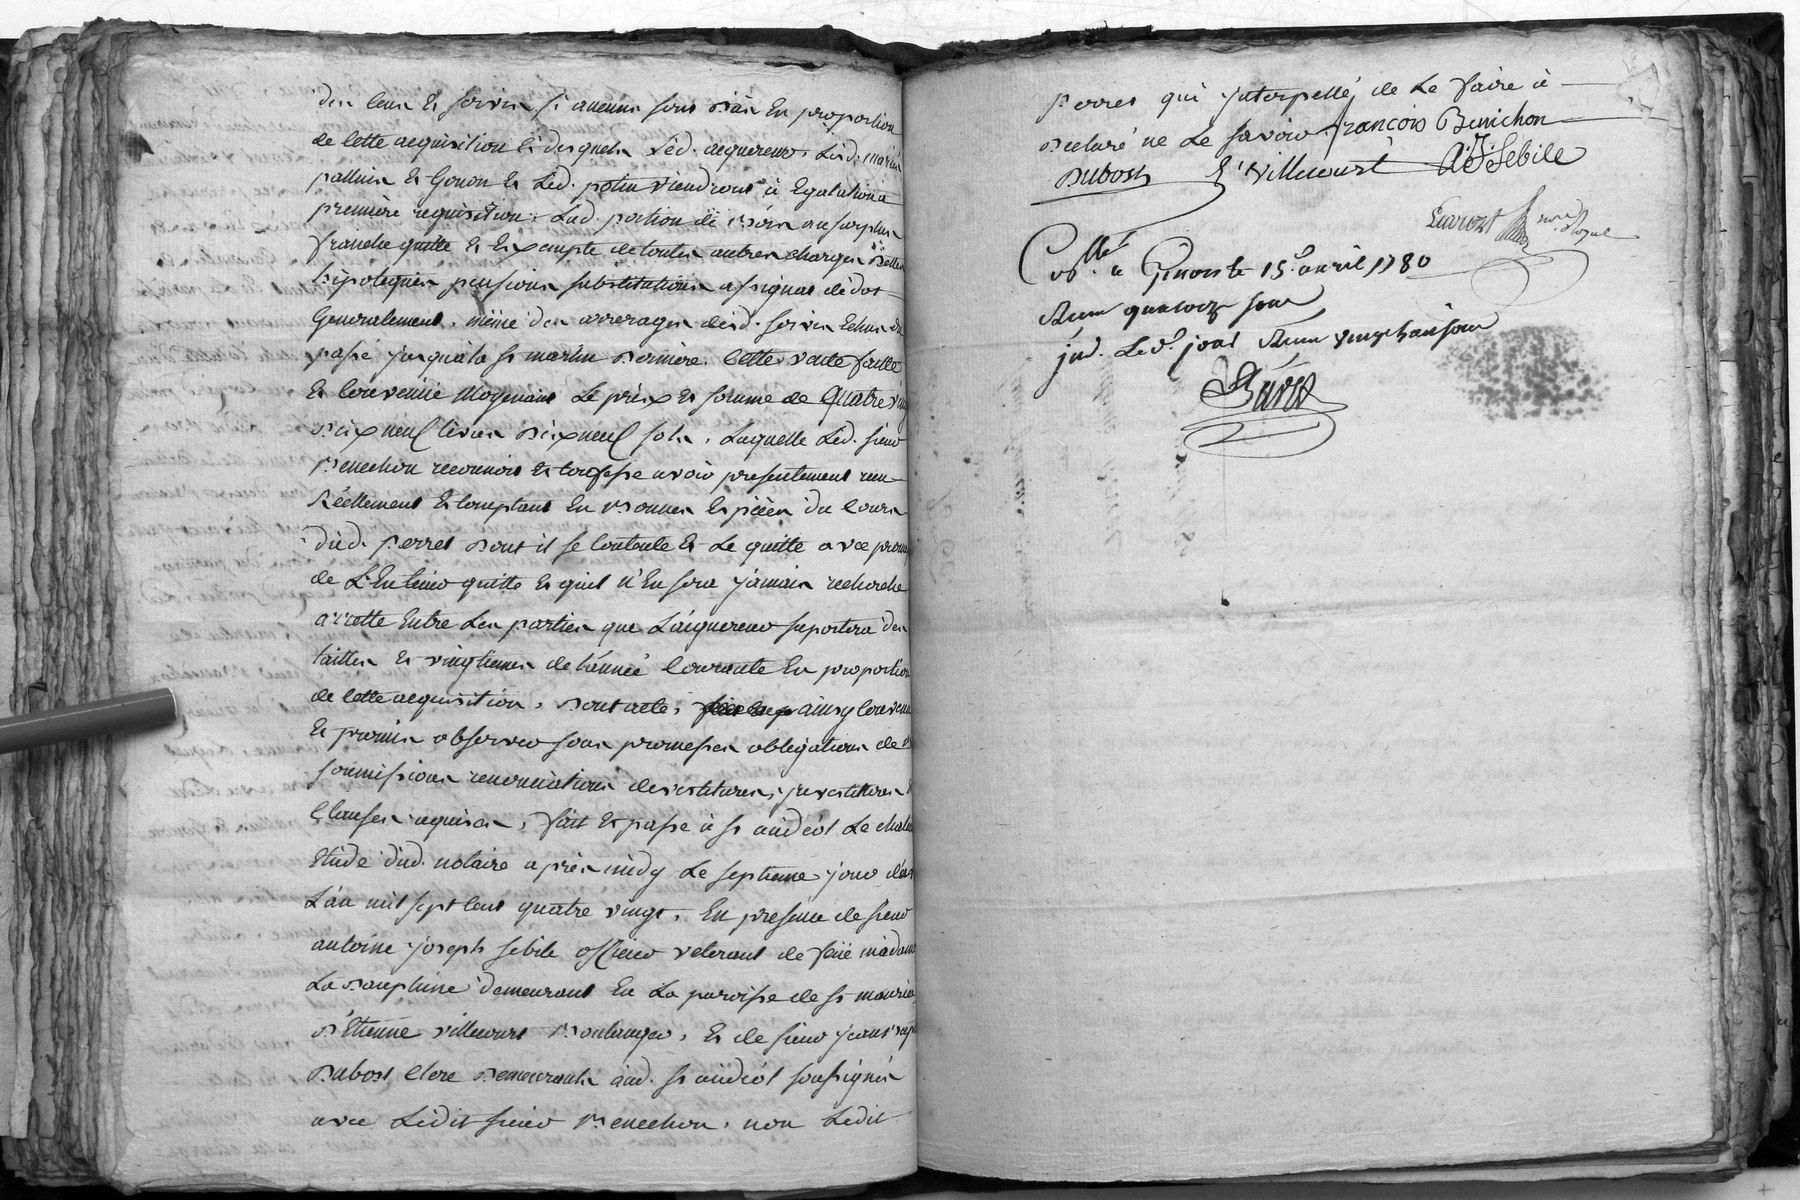 des cens et servis si aucuns sont dus en proportion
de cette acquisition lesquels led. acquereur, lesd. mariés
palluis et Gonon et led. potin viendront à Egalation a
première requisition. Lad. portion de au surplus
franche quitte et Exempte de toutes autres charges dettes
hipoteques pensions substitutions assignat de dot
Generalement, même des arrerages desd. servis Echus du
passé jusqu'à la st martin derniere. Cette vente faitte
et Convenüe Moyenant Le prix et somme de Quatre vingt
dixneuf livres dixneuf sols, Laquelle Led. sieur
Benechon reconnoit et confesse avoir presentement reçu
Réellement et Comptant En bonnes Espèces du cours
dud. perret dont il se Contente et Le quitte avec promesse
de L'En tenir quitte et qu'il n'En sera jamais recherché
arretté Entre Les parties que L'aiquereur suportera des
tailles et vingtiemes de l'année Courante En proportion
de cette acquisition, dont acte, ainsy Convenu
et promis observer sous promesses obligations de
soumissions renonciations devestitures, investitures et
Clauses requises, fait et passé à st andéol Le chateau
Etude dud. notaire après midy Le septieme jour d'avril
L'an mil sept Cent quatre vingt, En presence de sieur
antoine joseph sebile officier veterant de feüe madame
La dauphine demeurant En La paroisse de st maurice
d'Etienne villecourt Boulanger, et de sieur jean
dubost clerc demeurants aud. st andéol soussignés
avec Ledit sieur Benechon, non Ledit
perret qui jnterpellé de Le faire a
declaré ne Le savoir. françois Benichon
Dubost E. Villecourt A: J: Sebile
no.re Royal
Con.llé a Givors le 15.e avril 1780
Recu quatorze sous
jnd. Led. jour Recu